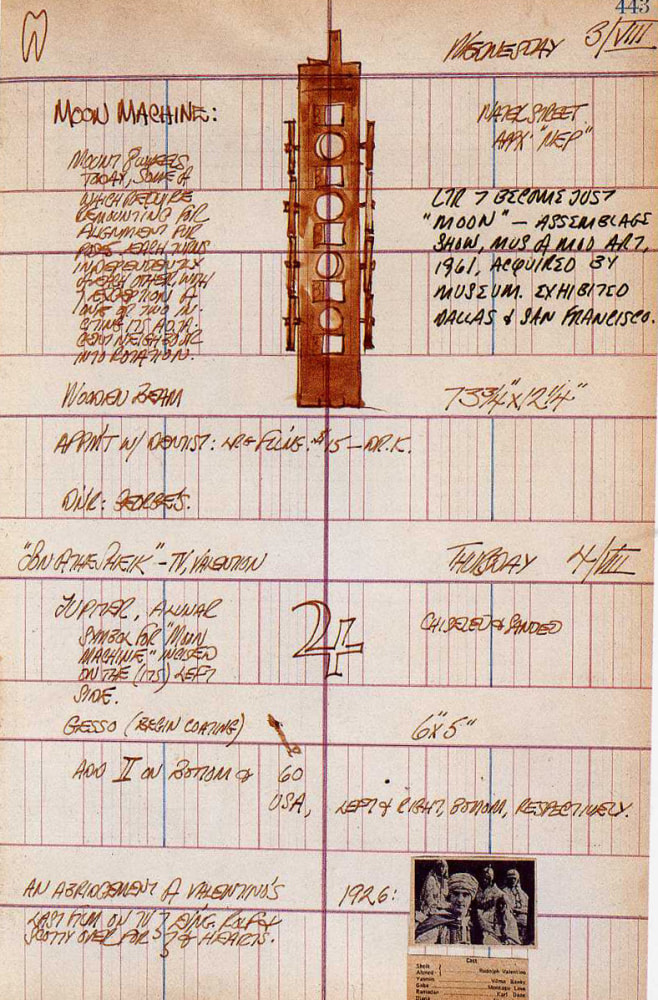 443
WEDNESDAY 3/VIII
MOON MACHINE:
MOUNT 8 WHEELS
TODAY, SOME OF
WHICH REQUIRE
REMOUNTING FOR
ALIGNMENT PUR
POSES. EACH TURNS
INDEPENDENTLY
OF EACH OTHER, WITH
EXCEPTION OF
ONE OR TWO IN-
CITING ITS ADJA-
CENT NEIGHBOUR
INTO ROTATION.
WATER STREET
APPX. "NEP"
LTR 7 BECOME JUST
"MOON" — ASSEMBLAGE
SHOW, MUS OF MOD ART,
1961, ACQUIRED BY
MUSEUM. EXHIBITED
DALLAS & SAN FRANCISCO.
WOODEN BEAM 73¾" X 12¼"
APPM'T W/ DENTIST: LRG FILLING. $15 — DR. K.
DNR: GEORGE'S.
"SON OF THE SHEIK" – TV, VALENTINO THURSDAY 4/VIII
JUPITER, A LUNAR
SYMBOL FOR "MOON
MACHINE," INCISED
ON THE (ITS) LEFT
SIDE.
♃
CHISELED & SANDED
GESSO (BEGIN COATING) 6" X 5"
ADD II ON BOTTOM & 60
USA, LEFT & RIGHT, BOTTOM, RESPECTIVELY.
AN ABRIDGEMENT OF VALENTINO'S 1926:
LAST FILM ON TV
SCOTTY OVER FOR & HEARTS.
Cast
Sheik
Ahmed Rudolph Valentino
Yasmin Vilma Banky
Gaba Montagu Love
Ramadan Karl Dane
Diana